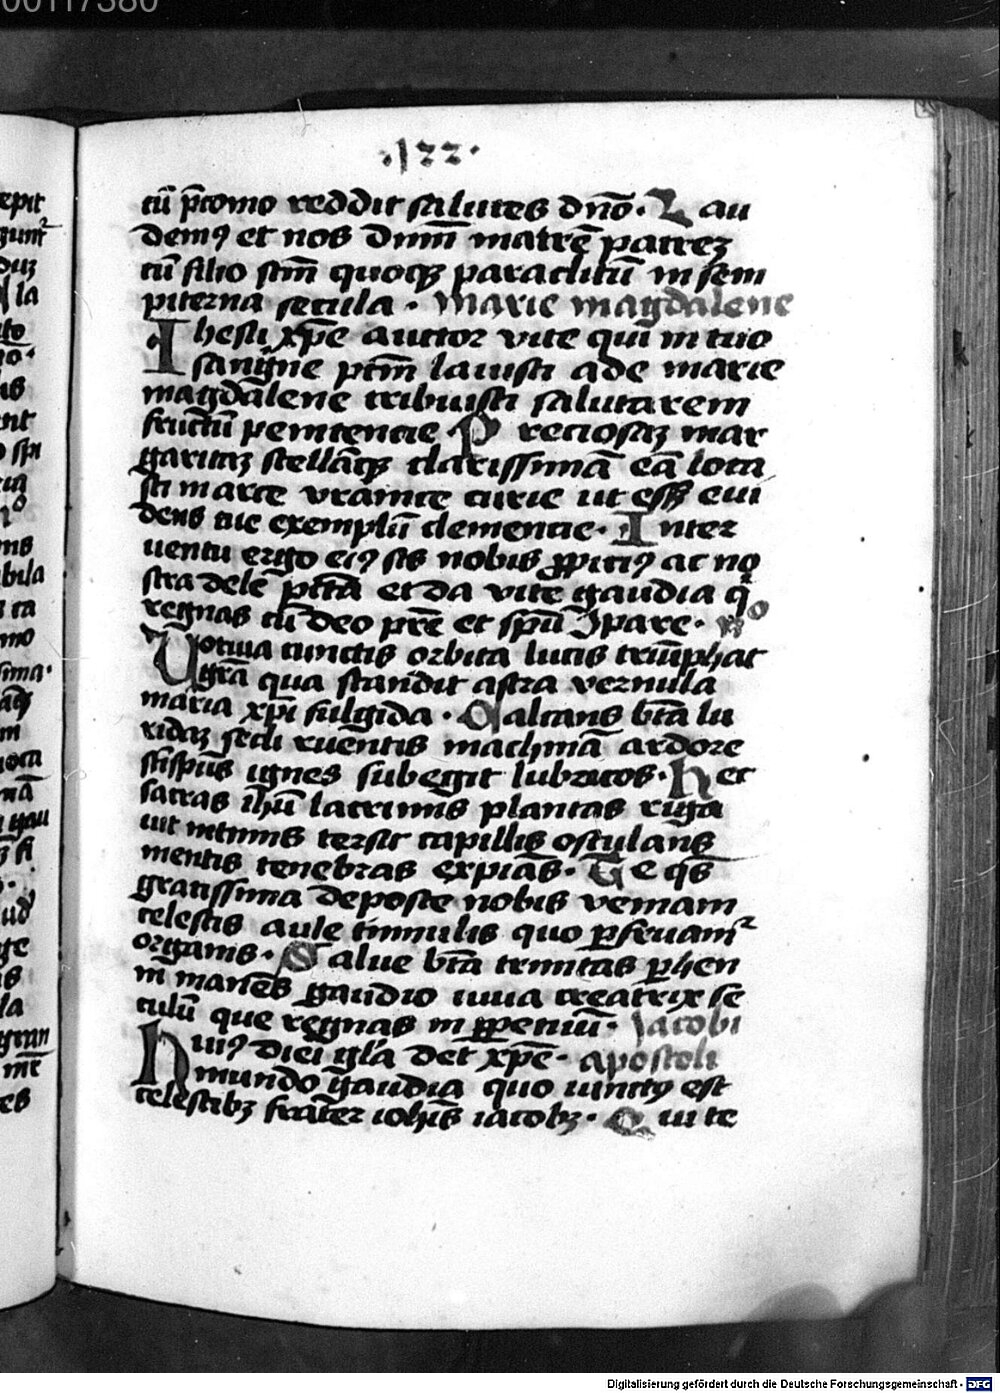 00117380
·122·
tū p̄como reddit salutes dn̄o · Lau
demꝰ et nos dnm̄ matrē patreꝫ
cū filio stm̄ quoqꝫ paraclitū in sem
piterna secula · marie magdalene
Ihesu xp̄e auctor vite qui in tuo
sangine ptm̄ lauisti ade marie
magdalene tribuisti salutarem
fructū penitencie · Preciosaꝫ mar
garitaꝫ stellāqꝫ clarissimā eā loca
sti marce vranice curie ut essꝫ eui
dens tue exemplū clemencie · Inter
uentu ergo eiꝰ sis nobis ꝓpiciꝰ ac no
stra dele pctā et da vite gaudia qͥ
regnas cū deo prē et spū
Votiua cunctis orbita lucis triūphat
grā qua scandit astra vernula
maria xp̄i fulgida · Calcans btā lu
ridaꝫ secli ruentis machinā ardore
ignes subegit lubricos · Hec
sacras ihū lacrimis plantas riga
uit intimis tersit capillis osculans
mentis tenebras expiās · Te qs̄
gratissima deposce nobis veniam
celestis aule timulis quo ꝑfruamr̄
organis · Salue btā trinitas ꝑhen
ni manēs gaudio iuua creatrix se
culū que regnas in ꝑpeniū · Jacobi
Huiꝰ diei glā det xp̄e · apostoli
mundo gaudia quo iunctꝰ est
celestibꝫ frāter iohīs iacobꝫ · Qui te
Digitalisierung gefördert durch die Deutsche Forschungsgemeinschaft - DFG